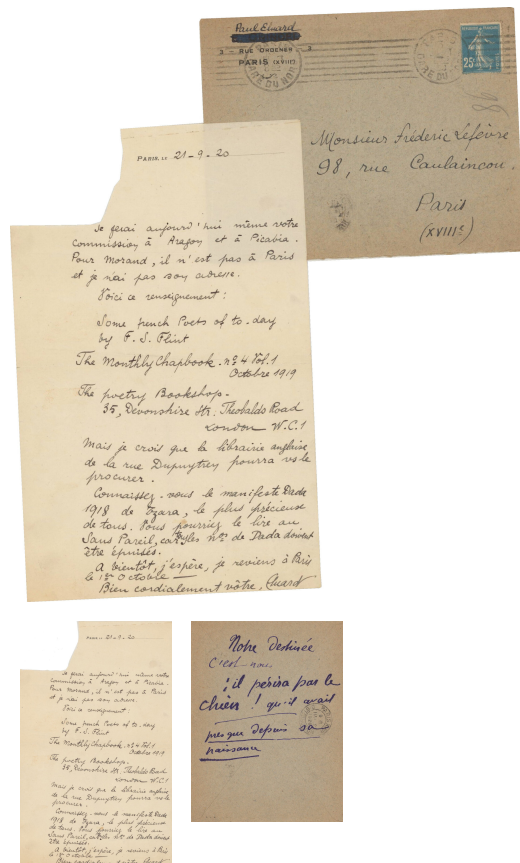 Paul Eluard
3 - RUE ORDENER - 3
PARIS (XVIIIE)
PARIS
GARE DU NORD
25c
Monsieur Fréderic Lefèvre
98, rue Caulaincou
Paris
(XVIIIe)
98
PARIS, LE 21-9-20
Je ferai aujourd'hui même votre
commission à Aragon et à Picabia.
Pour Morand, il n'est pas à Paris
et je n'ai pas son adresse.
Voici ce renseignement :
Some french Poets of to-day
by F. S. Flint
The Monthly Chapbook. no 4 Vol. 1
Octobre 1919
The poetry Bookshop -
35, Devonshire Str. Theobalds Road
London W.C.1
Mais je crois que la librairie anglaise
de la rue Dupuytren pourra vs le
procurer.
Connaissez-vous le manifeste Dada
1918 de Tzara, le plus précieux
de tous. Vous pourriez le lire au
Sans Pareil, car les nos de Dada doivent
être épuisés.
A bientôt, j'espère, je reviens à Paris
le 1er Octobre —
Bien cordialement vôtre, Eluard
21-9-20
Je ferai aujourd'hui même votre
commission à Aragon et à Picabia.
Pour Morand, il n'est pas à Paris
et je n'ai pas son adresse.
Voici ce renseignement :
Some french Poets of to-day
by F. S. Flint
The Monthly Chapbook. no 4 Vol. 1
Octobre 1919
The poetry Bookshop -
35, Devonshire Str. Theobalds Road
London W.C.1
Mais je crois que la librairie anglaise
de la rue Dupuytren pourra vs le
procurer.
Connaissez-vous le manifeste Dada
1918 de Tzara, le plus précieux
de tous. Vous pourriez le lire au
Sans Pareil, car les nos de Dada doivent
être épuisés.
A bientôt, j'espère, je reviens à Paris
le 1er Octobre
Bien cordialement vôtre, Eluard
Notre destinée
c'est-nous.
: il périra par le
chien ! qu'il avait
presque depuis sa
naissance